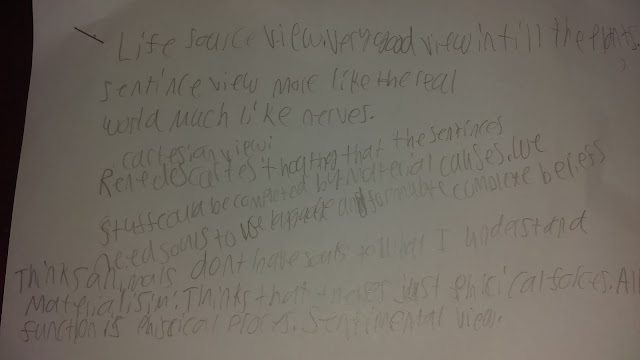 Life source view. Very good view intill the plants.
sentince view more like the real
world much like nerves.
cartesian view:
Rene descartes thogthg that the sentinces
stuff could be completed by material causes. We
need souls to use language and formulate complexe beliess
Thinks animals dont have souls to what I undastand
Materialisim: Thinks that theres just phicical folces. All
function is phisical places. Sentimental view.